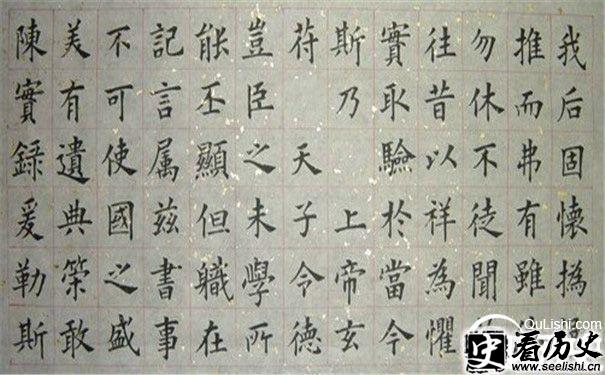 我后固懷撝
推而弗有雖
勿休不徒聞
往昔以祥為懼
實取驗於當今
斯乃 上帝玄
苻 天子令德
豈臣之未學所
能丕顯但軄在
記言属茲書事
不可使國之盛
美有遺典筞敢
陳實録爰勒斯
QuLishi.com
史 看历史
www.seelishi.cn